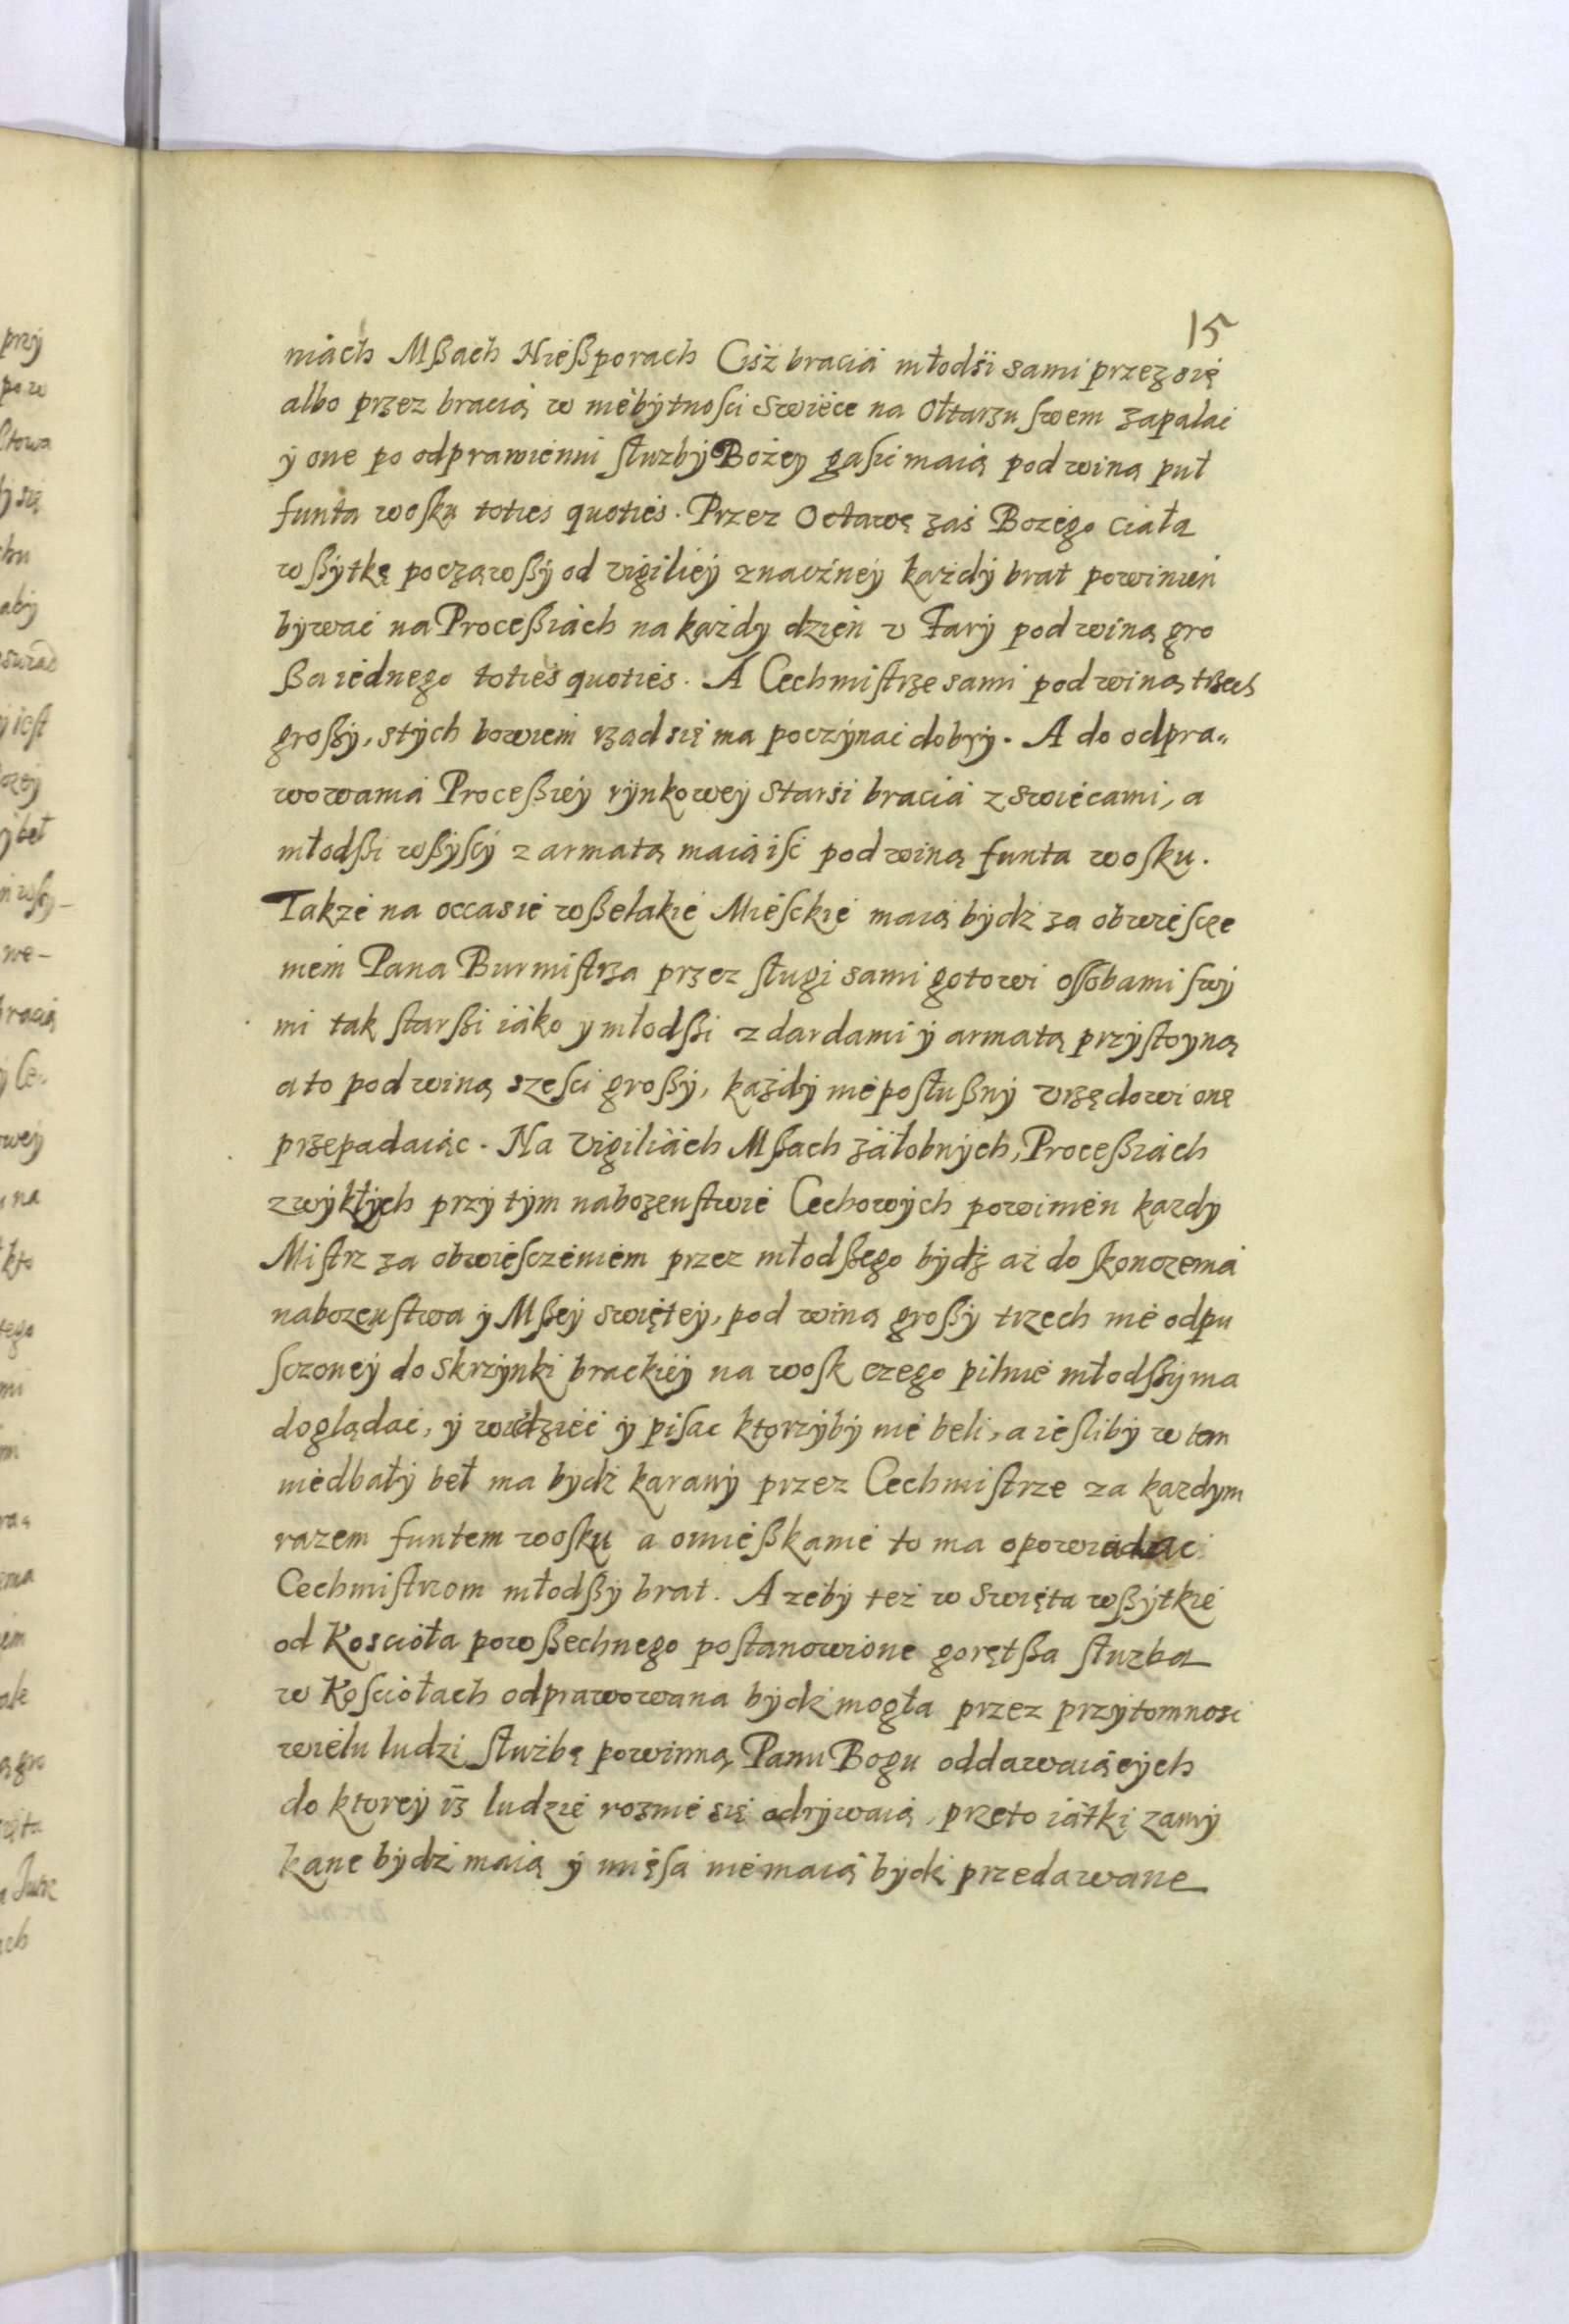 15
niach Mßach Nießporach Ciśż bracia młodśi sami przez się
albo przez bracią w niebytnosci Swiece na Ołtarzu swem zapalać
y one po odprawieniu słuzby Bożey gasić maią pod winą puł
funta wosku toties quoties. Przez Octawę zaś Bozego Ciała
wßytkę począwßy od vigiliey znaczney każdy brat powinien
bywać na Proceßiach na każdy dzień v Fary pod winą gro
ßa iednego toties quoties. A Cechmistrze sami pod winą trzech
großy, stych bowiem rząd się ma poczynać dobry. A do odpra„
wowania Proceßiey rynkowey starśi bracia z swiecami, a
młodßi wßyscy z armatą maią iść pod winą funta wosku.
Takze na occasie wßelakie Mieskie maią bydż za obwiescze
niem Pana Burmistrza przez sługi sami gotowi ossobami swy
mi tak starßi iako y młodßi z dardami y armatą przystoyną
a to pod winą szesci großy, każdy niéposłußny vrzędowi onę
przepadaiąc. Na Vigiliach Mßach załobnych, Proceßiach
zwykłych przy tym nabozenstwie Cechowych powinien kazdy
Mistrz za obwiesczeniem przez młodßego bydź aż do skonczenia
nabozenstwa y Mßey swiętey, pod winą großy trzech nie odpu
sczoney do skrzynki brackiey na wosk czego pilnie młodßy ma
doglądać, y widzieć y pisac ktorzyby nie beli, a iesliby w tem
niedbały beł ma bydż karany przez Cechmistrze za kazdym
razem funtem wosku a omießkanie to ma opowiadac
Cechmistrzom młodßy brat. A zeby też w Swięta wßytkie
od Koscioła powßechnego postanowione gorętßa słuzba
w Kosciołach odprawowana bydź mogła przez przytomnosc
wielu ludzi służbę powinną Panu Bogu oddawaiących
do ktorey iż ludzie roznie się odrywaią, przeto iatki zamy
kane bydż maią y mięsa niemaią bydź przedawane